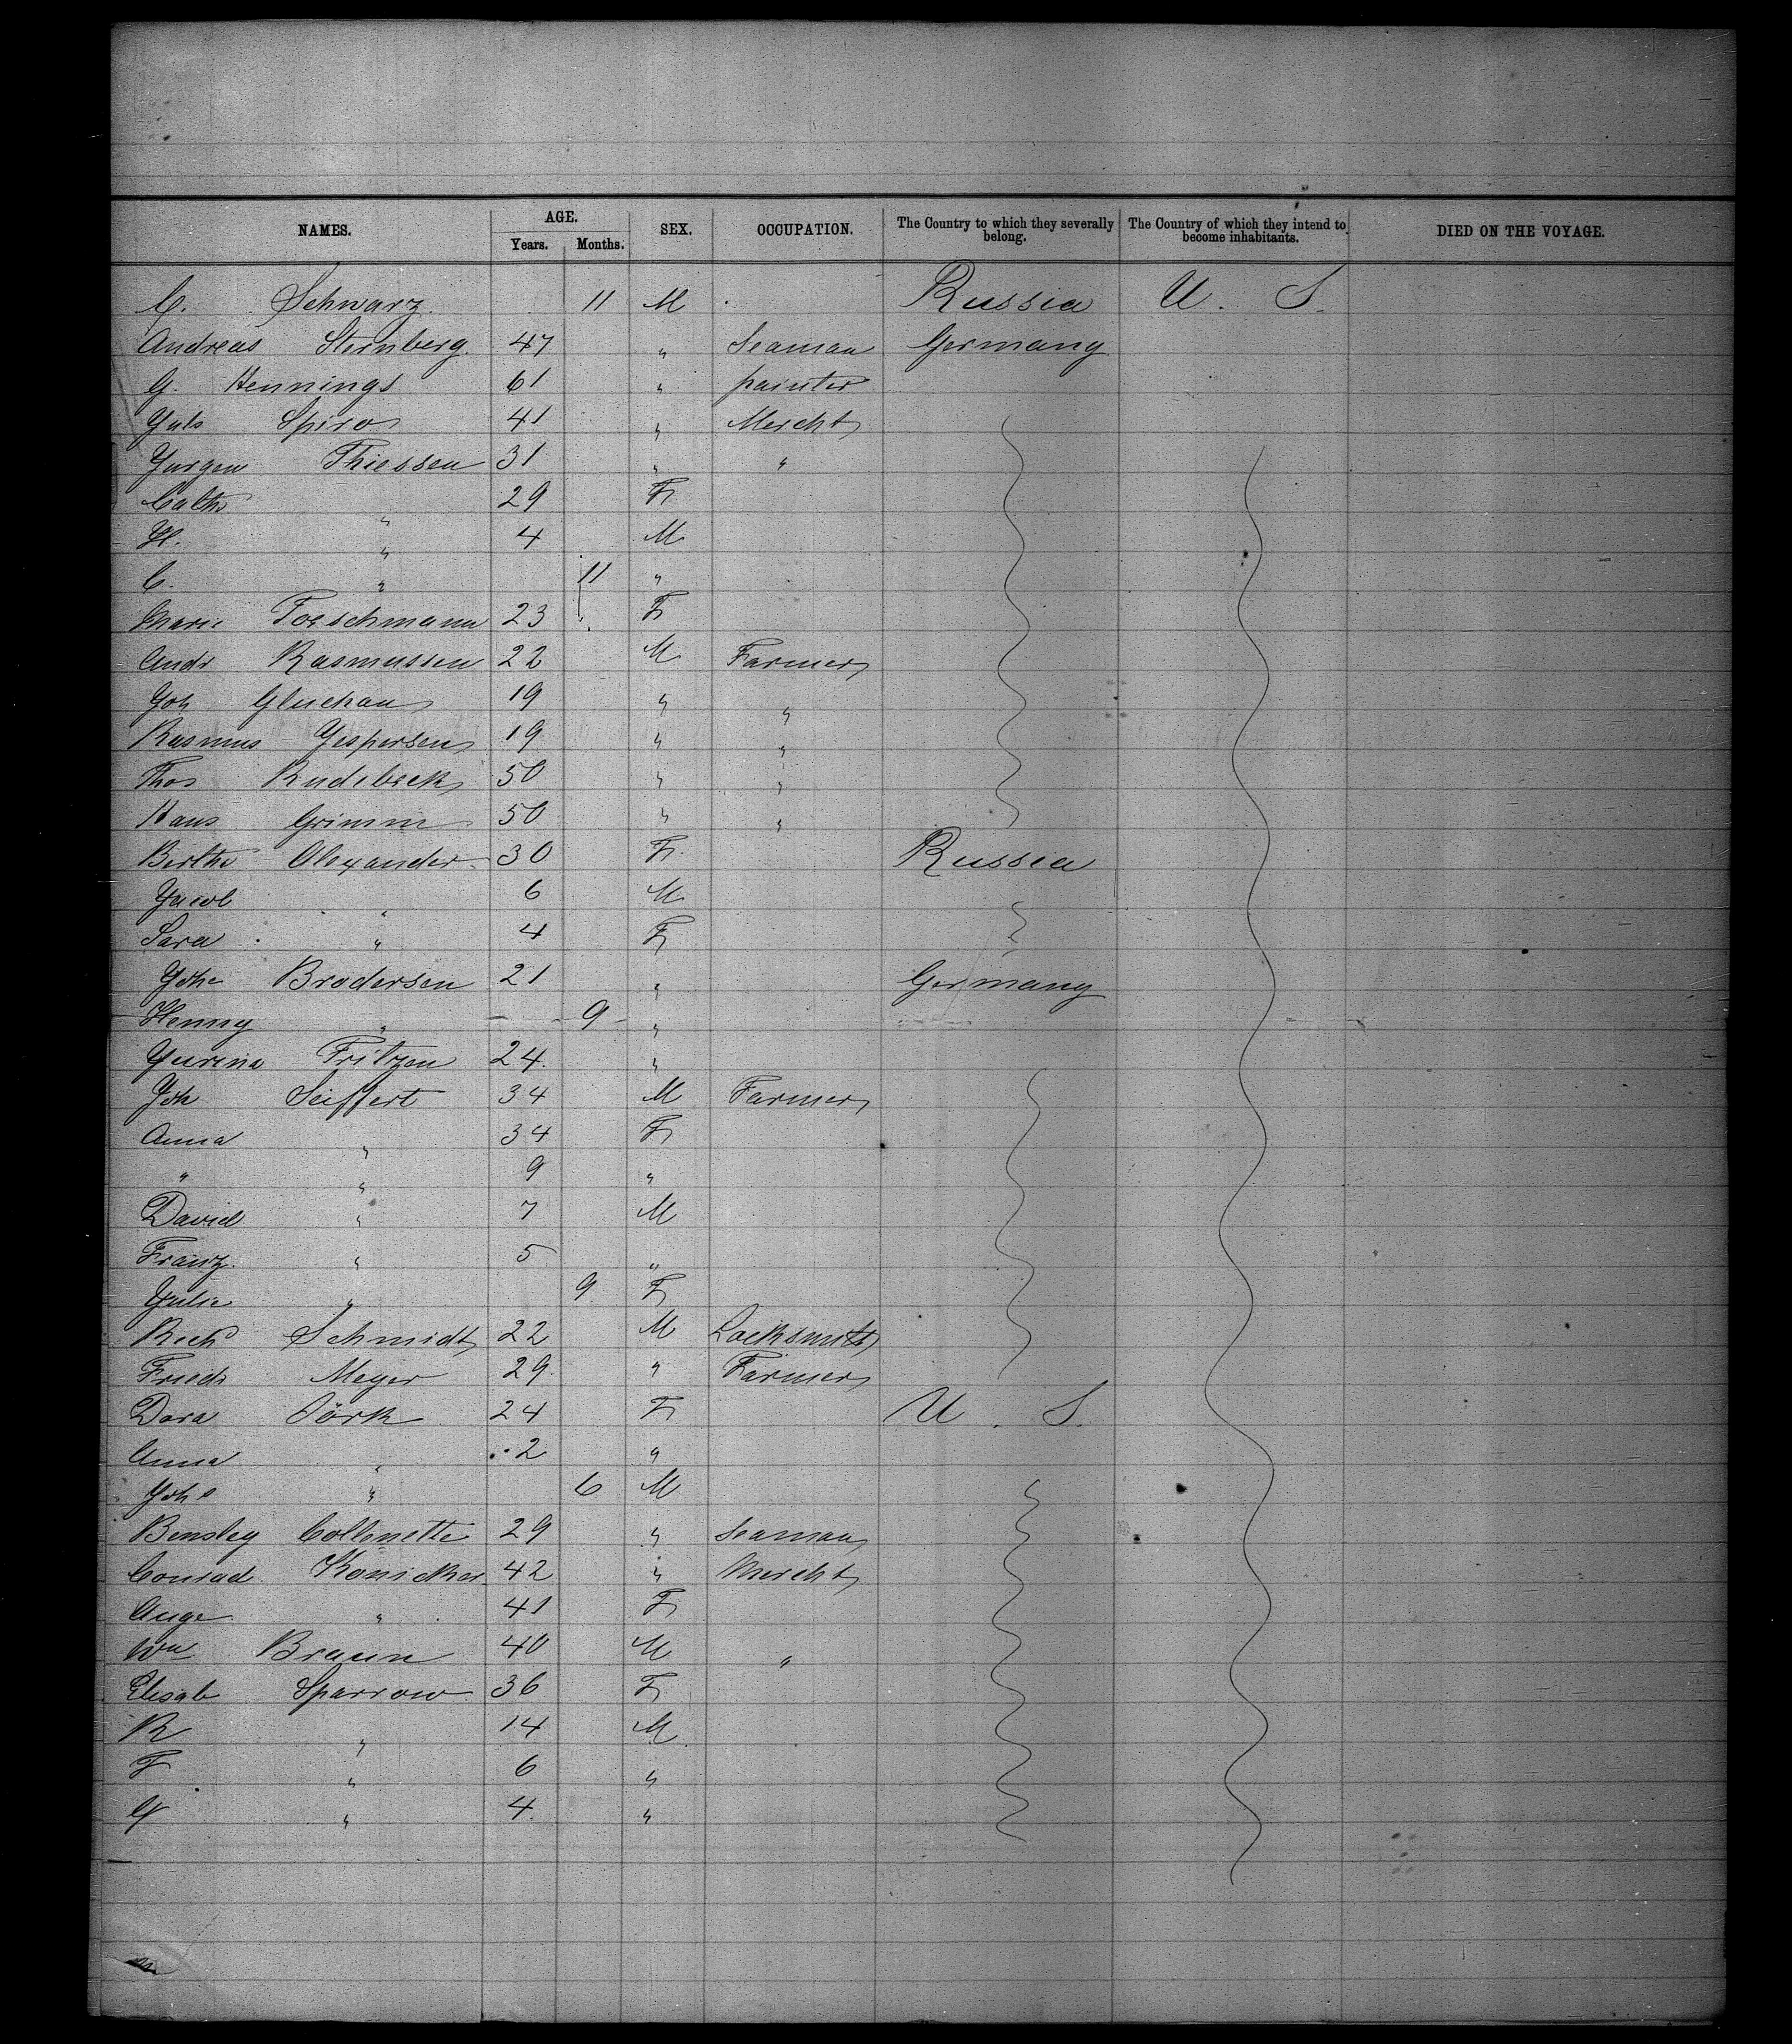 NAMES. AGE. Years. Months. SEX. OCCUPATION. The Country to which they severally belong. The Country of which they intend to become inhabitants. DIED ON THE VOYAGE.
C. Schwarz 11 M Russia U. S.
Andreas Sternberg 47 " Seaman Germany
G. Hennings 61 " painter
Yuls Spiro 41 " Mercht
Yurgen Thiessen 31 " "
Cath " 29 F
H. " 4 M
C. " 11 "
Marie Toeschmann 23 F
Andr Rasmussen 22 M Farmer
Yoh Gluchau 19 " "
Rasmus Yespersen 19 " "
Thos Rudebeck 50 " "
Hans Grimm 50 " "
Berthe Alexander 30 F Russia
Yacob " 6 M
Sara " 4 F
Yohe Brodersen 21 " Germany
Henny " 9 "
Yurina Fritzen 24 "
Yoh Seiffert 34 M Farmer
Anna " 34 F
" " 9 "
David " 7 M
Franz " 5 "
Yulie " 9 F
Rich Schmidt 22 M Locksmith
Friedr Meyer 29 " Farmer
Dora 24 F U. S.
Anna " 2 "
Yohs " 6 M
Bensley Collenette 29 " Seaman
Conrad Konicker 42 " Mercht
Auge " 41 F
Wm Braun 40 M "
Elisab Sparrow 36 F
R " 14 M
F " 6 "
Y " 4 "